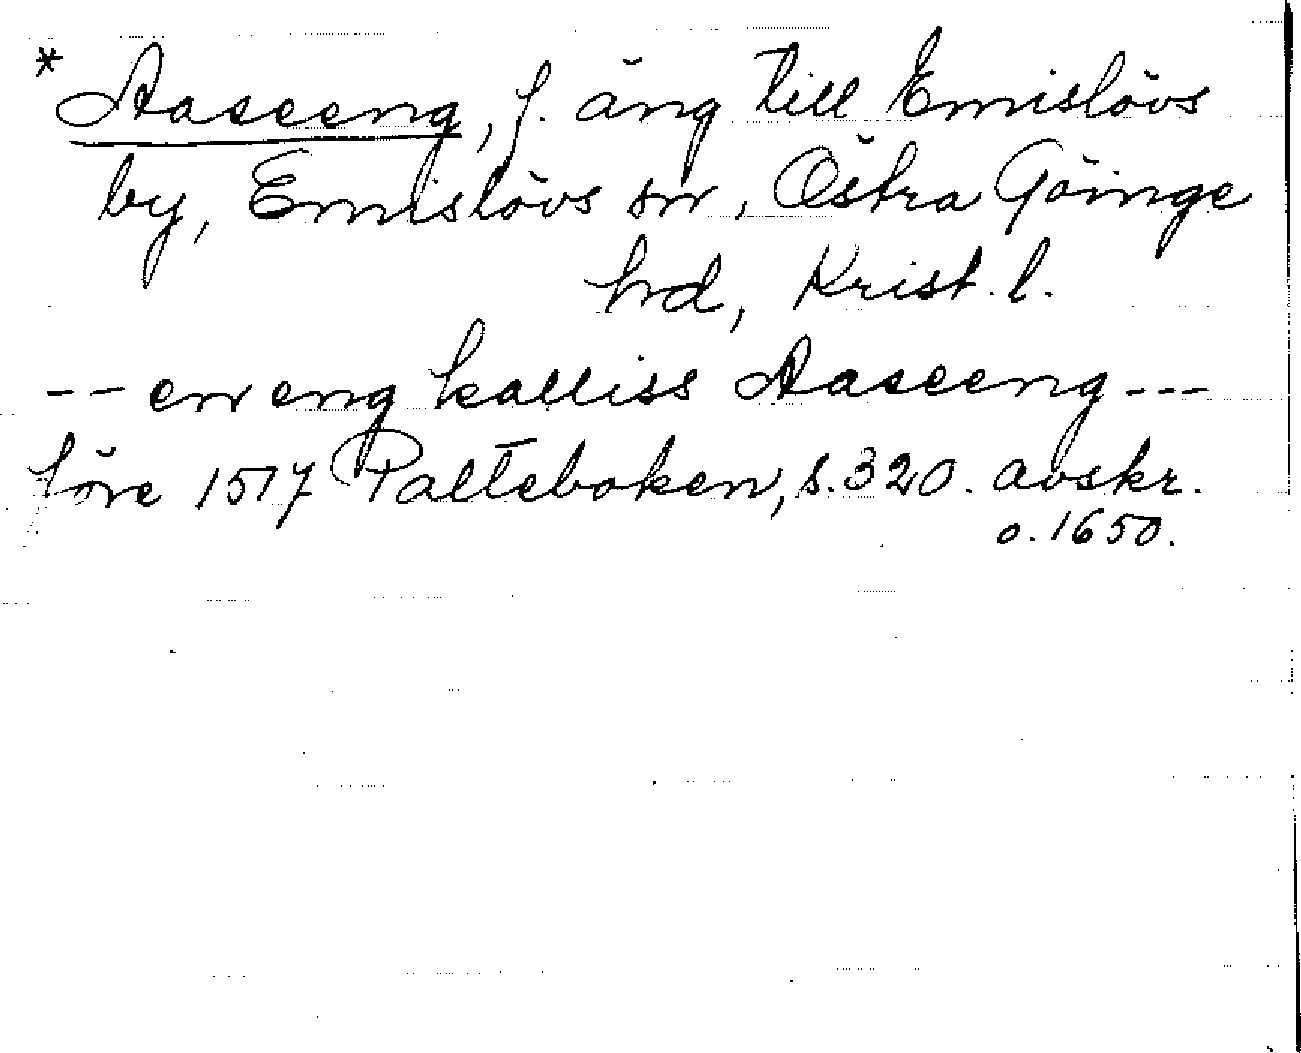 * Aaseeng, f. äng till Emislövs
by, Emislövs sn, Östra Göinge
hd, Krist. l.
-- en eng kalliss Aaseeng ---
före 1517 Palteboken, s. 320. avskr.
o. 1650.